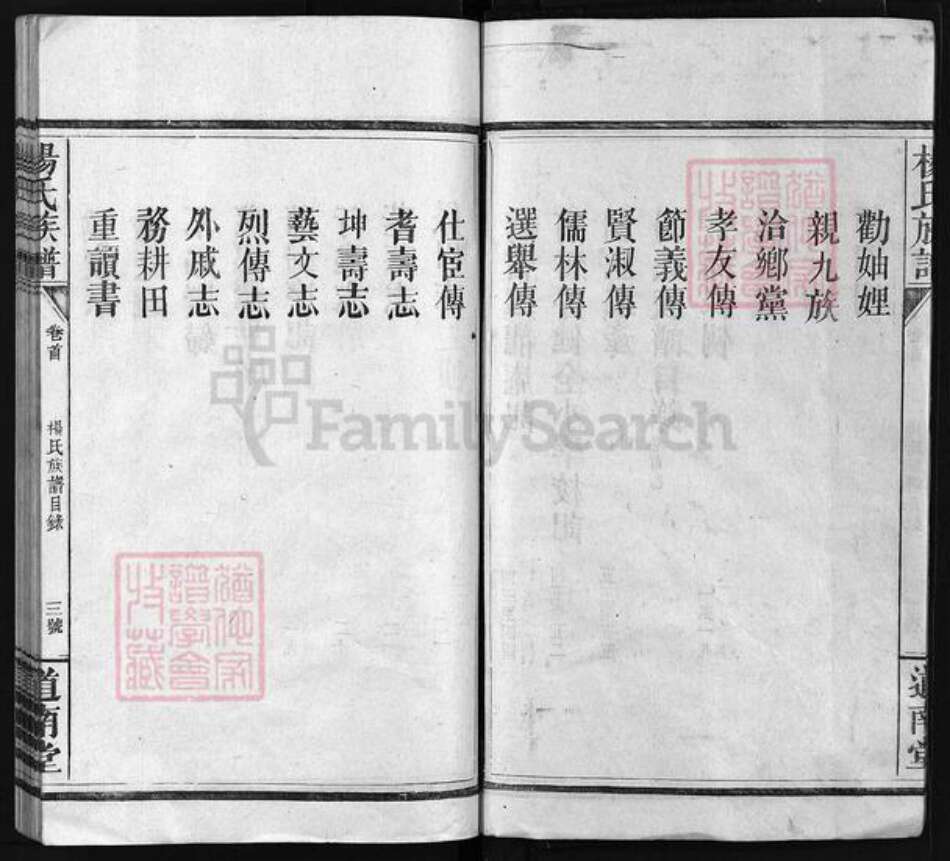 楊氏族譜
道南堂
勸妯娌
親九族
洽鄉黨
孝友傳
節義傳
賢淑傳
儒林傳
選舉傳
仕宦傳
耆壽志
坤壽志
藝文志
烈傳志
外戚志
務耕田
重讀書
楊氏族譜
卷首
楊氏族譜目錄
三號
道南堂
FamilySearch
譜學會
收藏